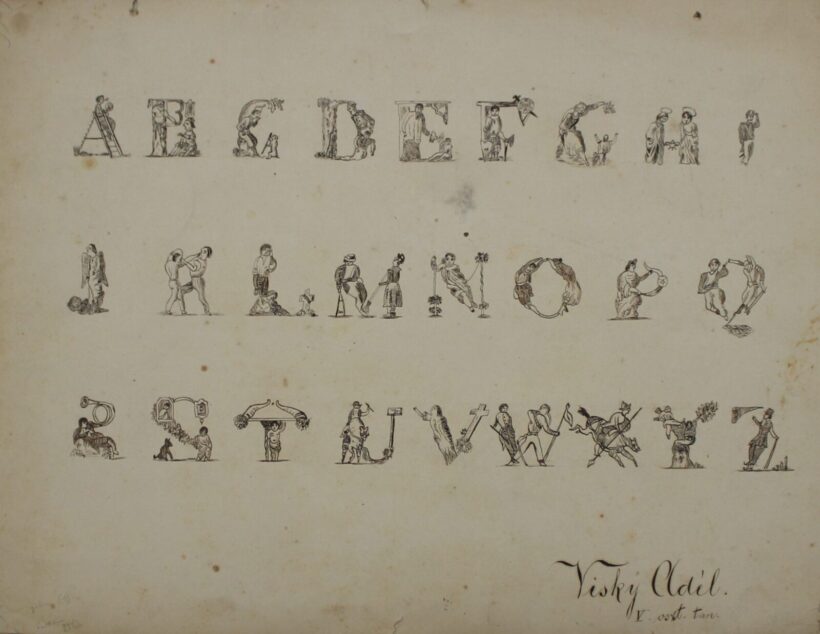 A B C D E F G H I
J K L M N O P Q
R S T U V W X Y Z
Visky Adél.
V. oszt. tan.